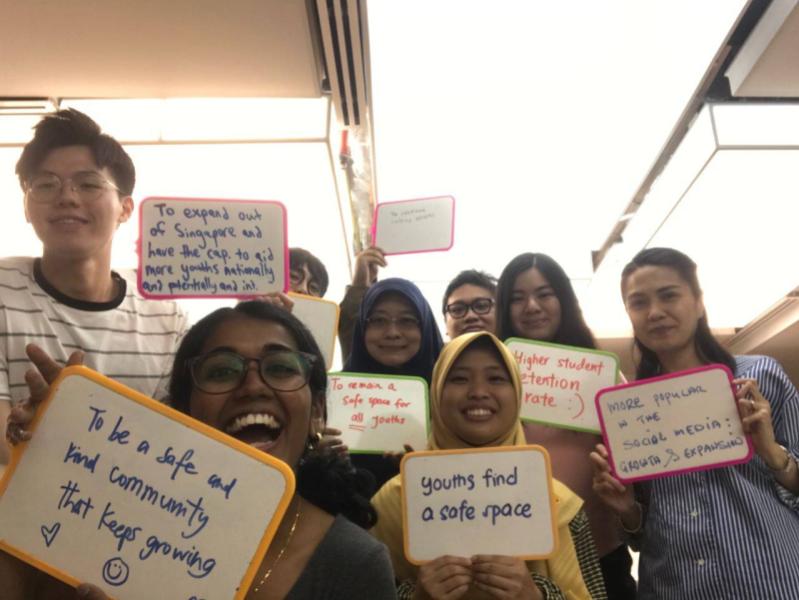 To expand out
of Singapore and
have the cap. to aid
more youths nationally
and potentially and int.
To
To remain a
safe space for
all youths
Higher student
retention
rate :)
MORE POPULAR
IN THE
SOCIAL MEDIA :
GROWTH & EXPANSION
To be a safe and
kind community
that keeps growing
youths find
a safe space